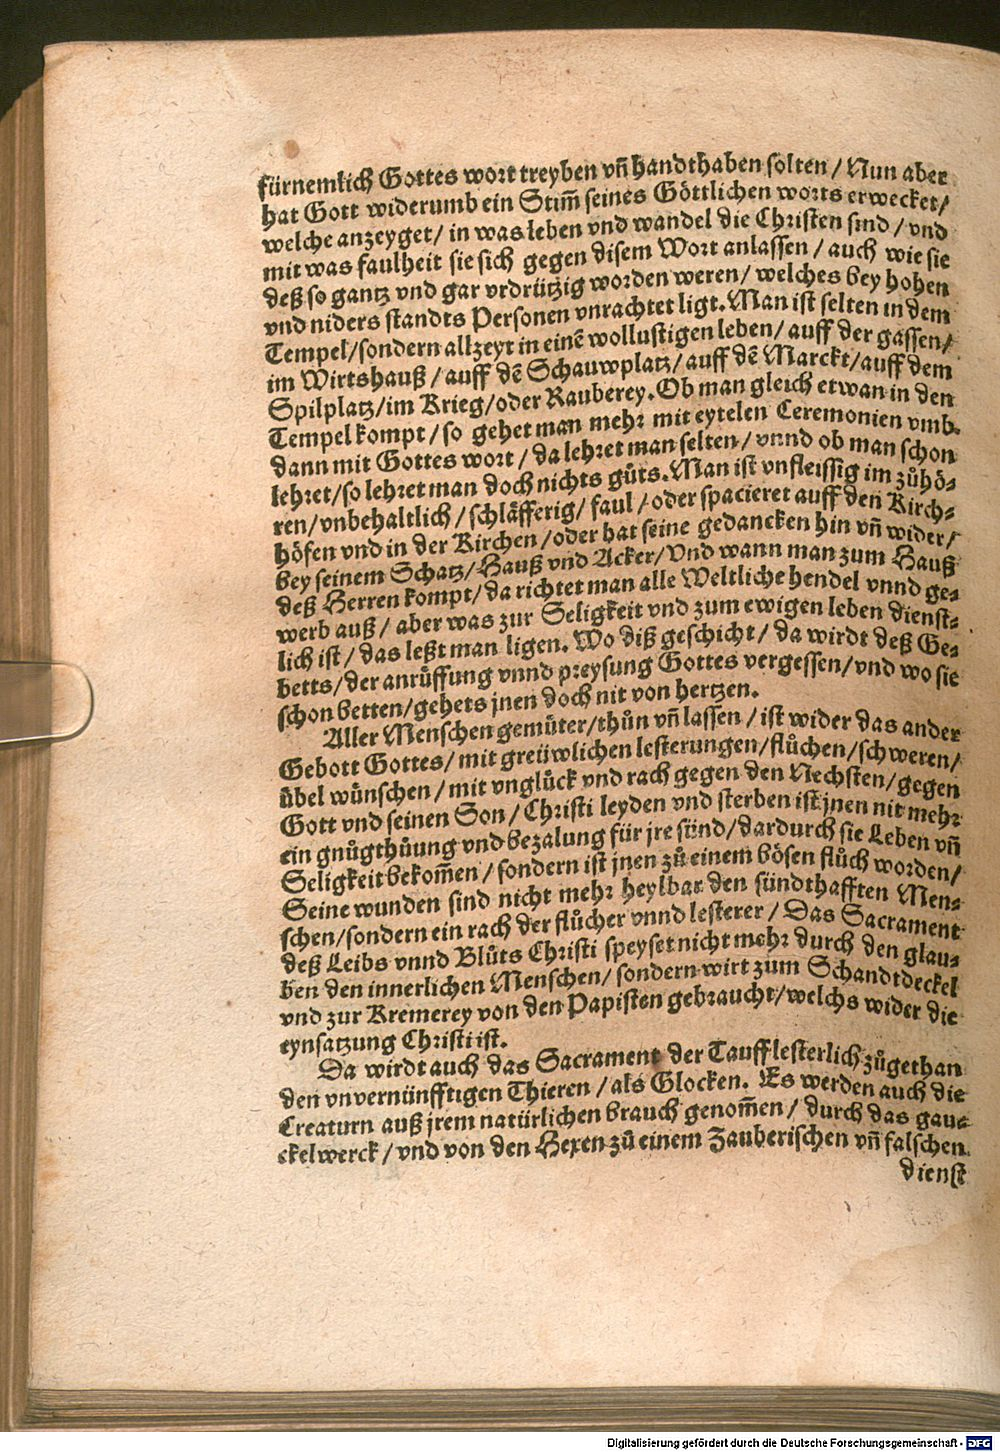 fürnemlich Gottes wort treyben vñ handthaben solten / Nun aber
hat Gott widerumb ein Stim̃ seines Göttlichen worts erwecket/
welche anzeyget/ in was leben vnd wandel die Christen sind / vnd
mit was faulheit sie sich gegen disem Wort anlassen / auch wie sie
deß so gantz vnd gar vrdrützig worden weren/ welches bey hohen
vnd niders standts Personen vnrachtet ligt. Man ist selten in dem
Tempel/sondern allzeyt in einẽ wollustigen leben/ auff der gassen/
im Wirtshauß / auff dẽ Schauwplatz/ auff dẽ Marckt/auff dem
Spilplatz/im Krieg/oder Rauberey. Ob man gleich etwan in den
Tempel kompt / so gehet man mehr mit eytelen Ceremonien vmb/
dann mit Gottes wort / da lehret man selten/ vnnd ob man schon
lehret/so lehret man doch nichts gůts. Man ist vnfleissig im zůhö-
ren/vnbehaltlich / schläfferig/ faul / oder spacieret auff den Kirch-
höfen vnd in der Kirchen /oder hat seine gedancken hin vñ wider/
bey seinem Schatz/ Hauß vnd Acker/ Vnd wann man zum Hauß
deß Herren kompt/ da richtet man alle Weltliche hendel vnnd ge-
werb auß / aber was zur Seligkeit vnd zum ewigen leben dienst-
lich ist / das leßt man ligen. Wo diß geschicht / da wirdt deß Ge-
betts/ der anrüffung vnnd preysung Gottes vergessen/vnd wo sie
schon betten/gehets jnen doch nit von hertzen.
Aller Menschen gemüter/thůn vñ lassen / ist wider das ander
Gebott Gottes/ mit greüwlichen lesterungen/flůchen/schweren/
übel wünschen / mit vnglück vnd rach gegen den Nechsten/ gegen
Gott vnd seinen Son / Christi leyden vnd sterben ist jnen nit mehr
ein gnůgthůung vnd bezalung für jre sünd/dardurch sie Leben vñ
Seligkeit bekom̃en / sondern ist jnen zů einem bösen flůch worden/
Seine wunden sind nicht mehr heylbar den sündthafften Men-
schen/sondern ein rach der flůcher vnnd lesterer / Das Sacrament
deß Leibs vnnd Blůts Christi speyset nicht mehr durch den glau-
ben den innerlichen Menschen/ sondern wirt zum Schandtdeckel
vnd zur Kremerey von den Papisten gebraucht/welchs wider die
eynsatzung Christi ist.
Da wirdt auch das Sacrament der Tauff lesterlich zůgethan
den vnvernünfftigen Thieren / als Glocken. Es werden auch die
Creaturn auß jrem natürlichen brauch genom̃en / durch das gau-
ckelwerck / vnd von den Hexen zů einem Zauberischen vñ falschen
dienst
Digitalisierung gefördert durch die Deutsche Forschungsgemeinschaft - DFG